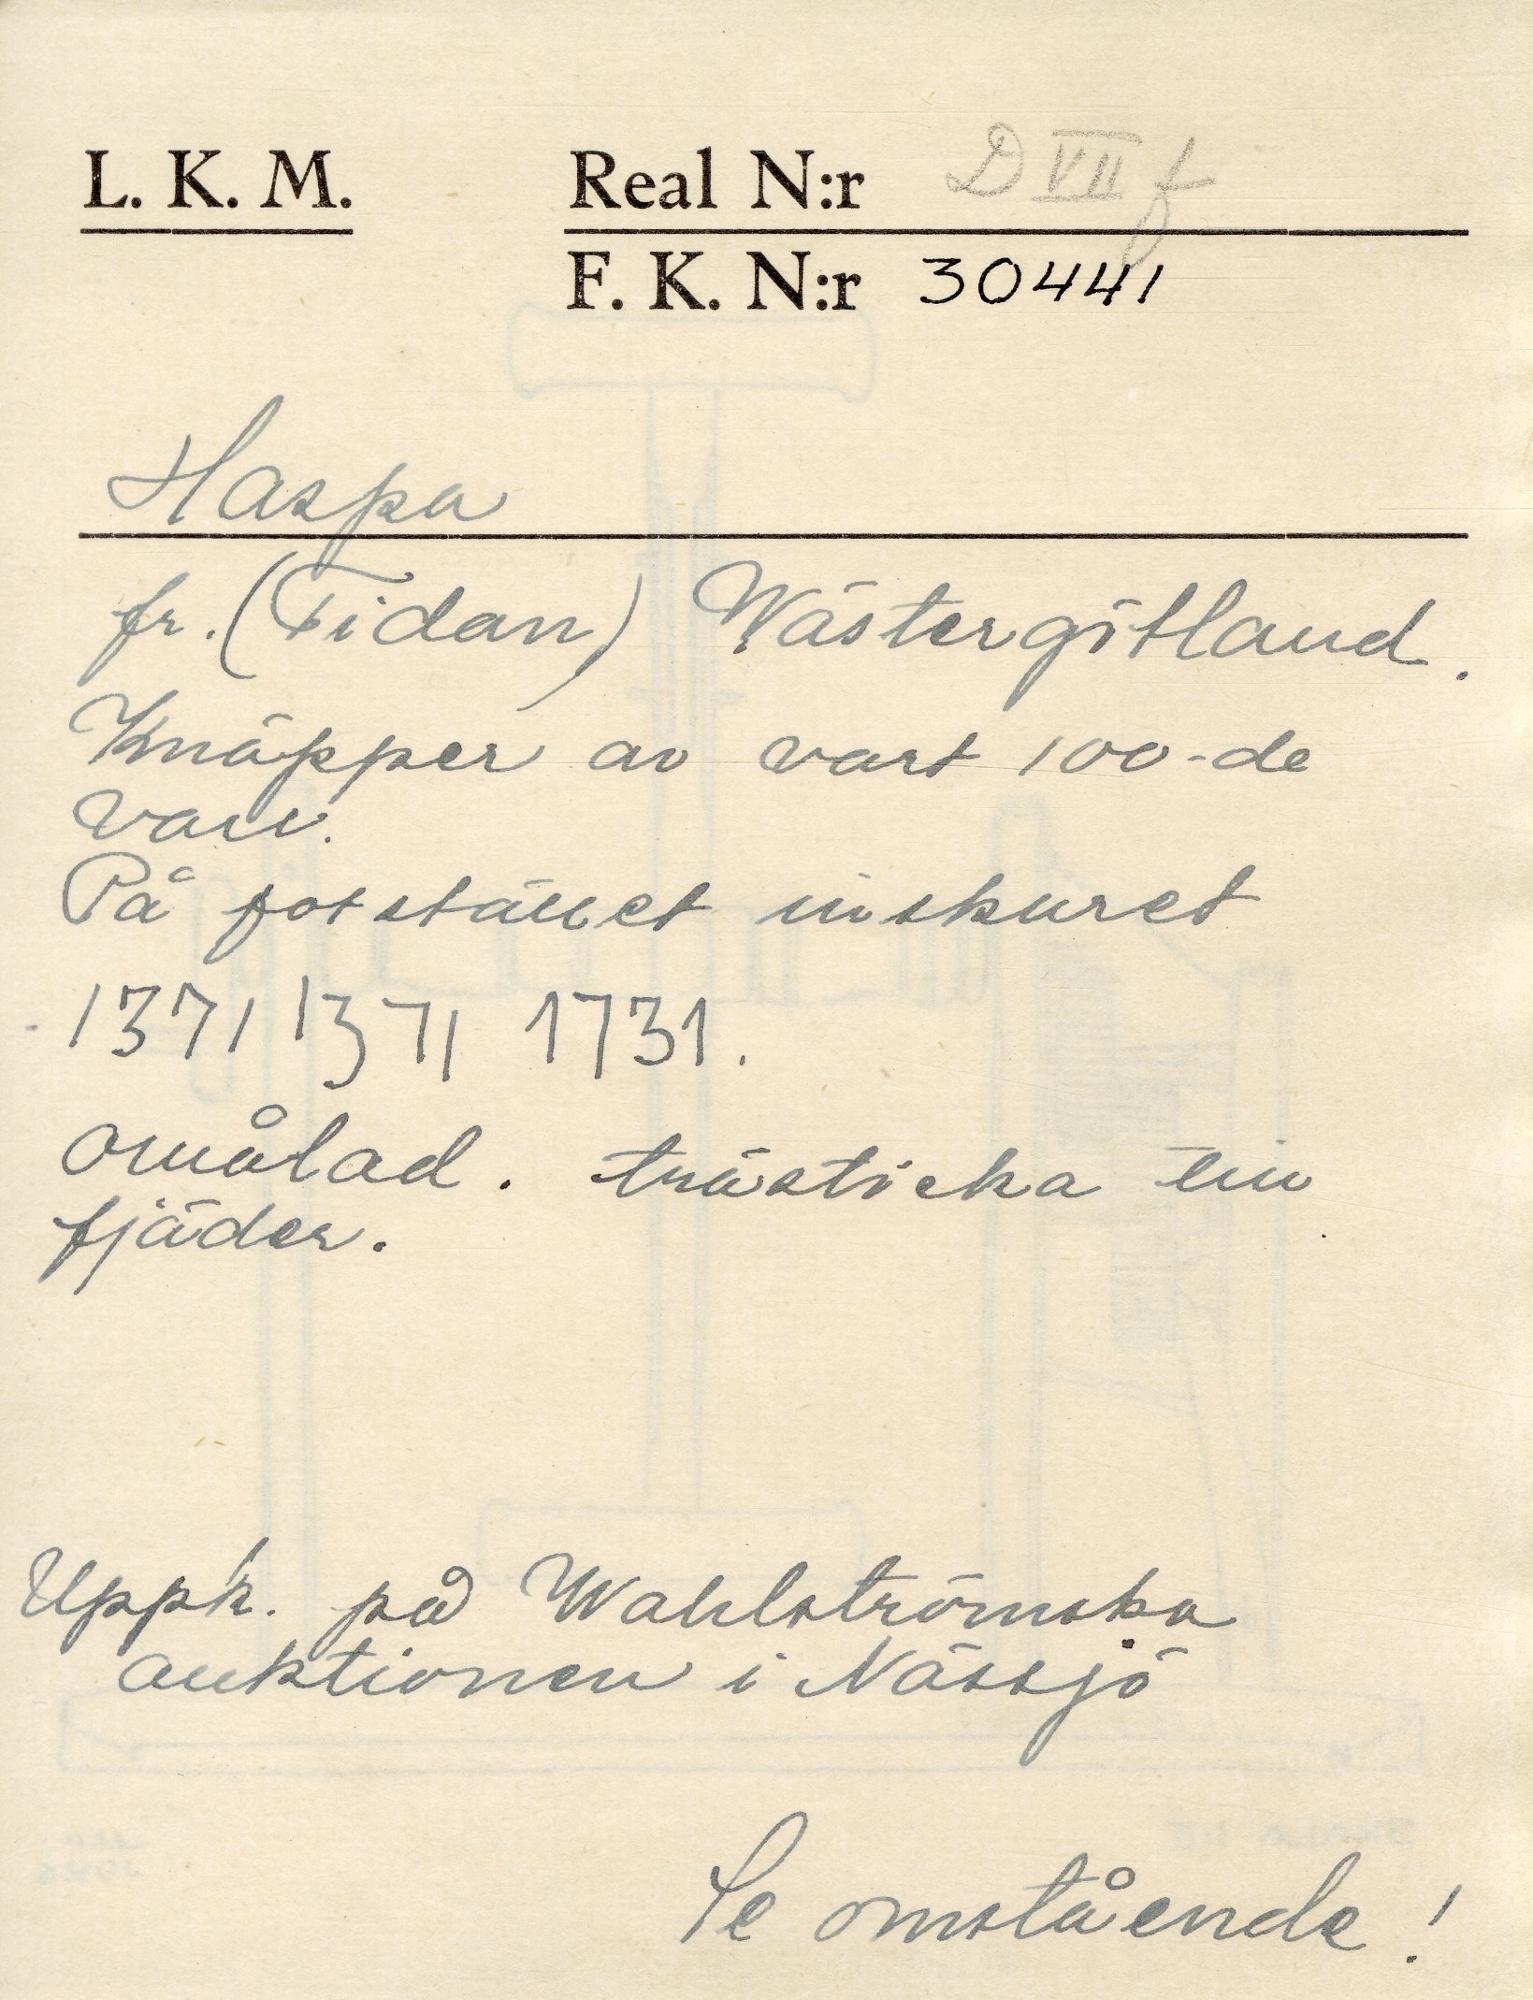 L. K. M. Real N:r D VII f
F. K. N:r 30441
Haspa
fr. (Tidan) Wästergötland.
Knäpper av vart 100-de
varv.
På fotstället inskuret
1371 1371 1731.
omålad. trästicka till
fjäder.
Uppk. på Wahlströmska
auktionen i Nässjö
Se omstående!